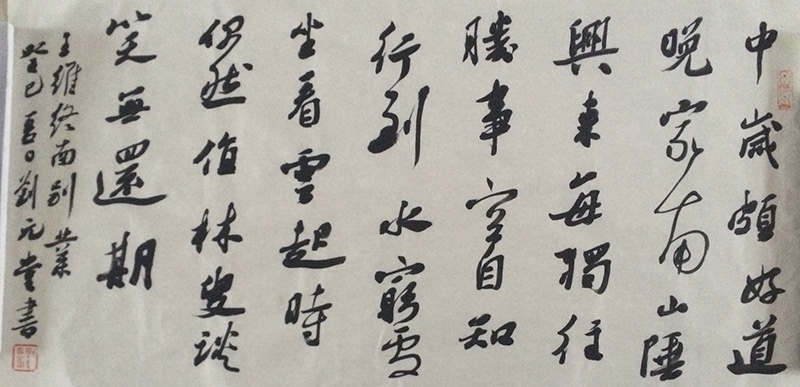 中歲頗好道
晚家南山陲
興來每獨往
勝事空自知
行到水窮處
坐看雲起時
偶然值林叟談
笑無還期
王維終南別業
癸巳夏日劉元堂書